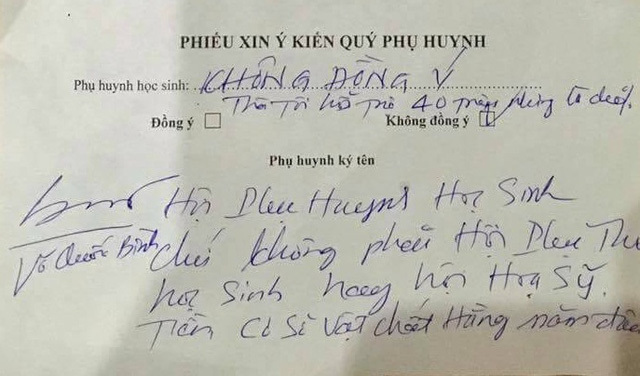 PHIẾU XIN Ý KIẾN QUÝ PHỤ HUYNH
Phụ huynh học sinh: KHÔNG ĐỒNG Ý
Thà Tôi hỗ trợ 40 triệu
Đồng ý ☐ Không đồng ý ☑
Phụ huynh ký tên
Hội Phụ Huynh Học Sinh
Võ Quốc Bình
chứ không phải Hội Phụ Thu
học Sinh hay hội Hoạ Sỹ.
Tiền Cơ Sở Vật chất Hàng năm đâu